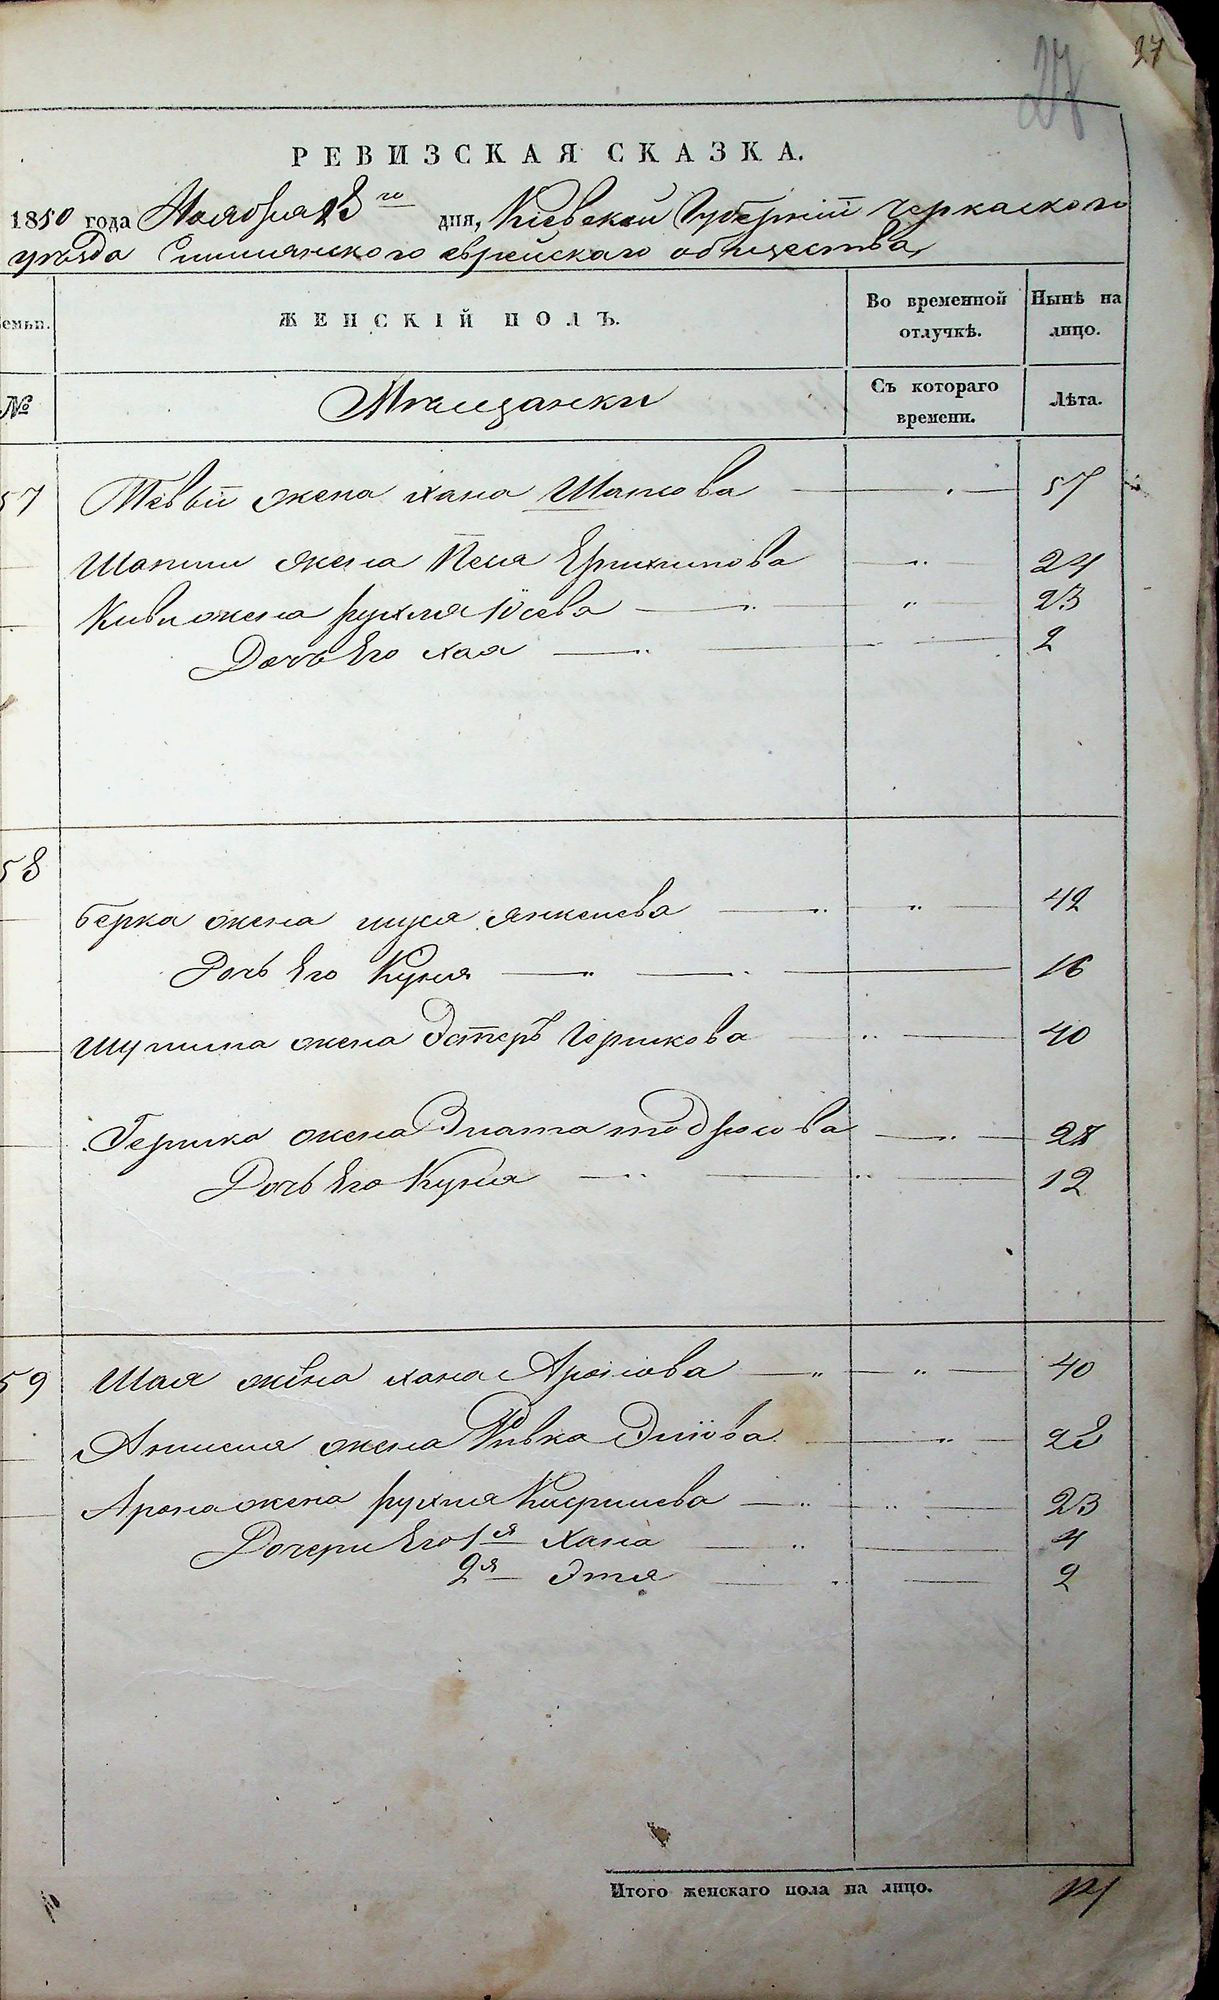 27 27
РЕВИЗСКАЯ СКАЗКА.
1850 года Ноября 13го дня, Кіевской Губерніи Черкаского
уѣзда еврейскаго общества
емьи. ЖЕНСКІЙ ПОЛЪ. Во временной отлучкѣ. Нынѣ на лицо.
№ Мѣщанки Съ котораго времени. Лѣта.
57 Тевыи жена Хана 57
жена Песя 24
Киви жена рухля Іосева 23
Дочь Его Хая 2
58
Берка жена Янкелева 42
Дочь Его Куня 16
жена Эстеръ Гершкова 40
Гершка жена Злата 28
Дочь Его Куня 12
59 Шая жена Хана Аронова 40
жена Ривка 22
Арона жена рухля 23
Дочери Его 1я Хана 4
2я Этя 2
Итого женскаго пола на лицо. 14